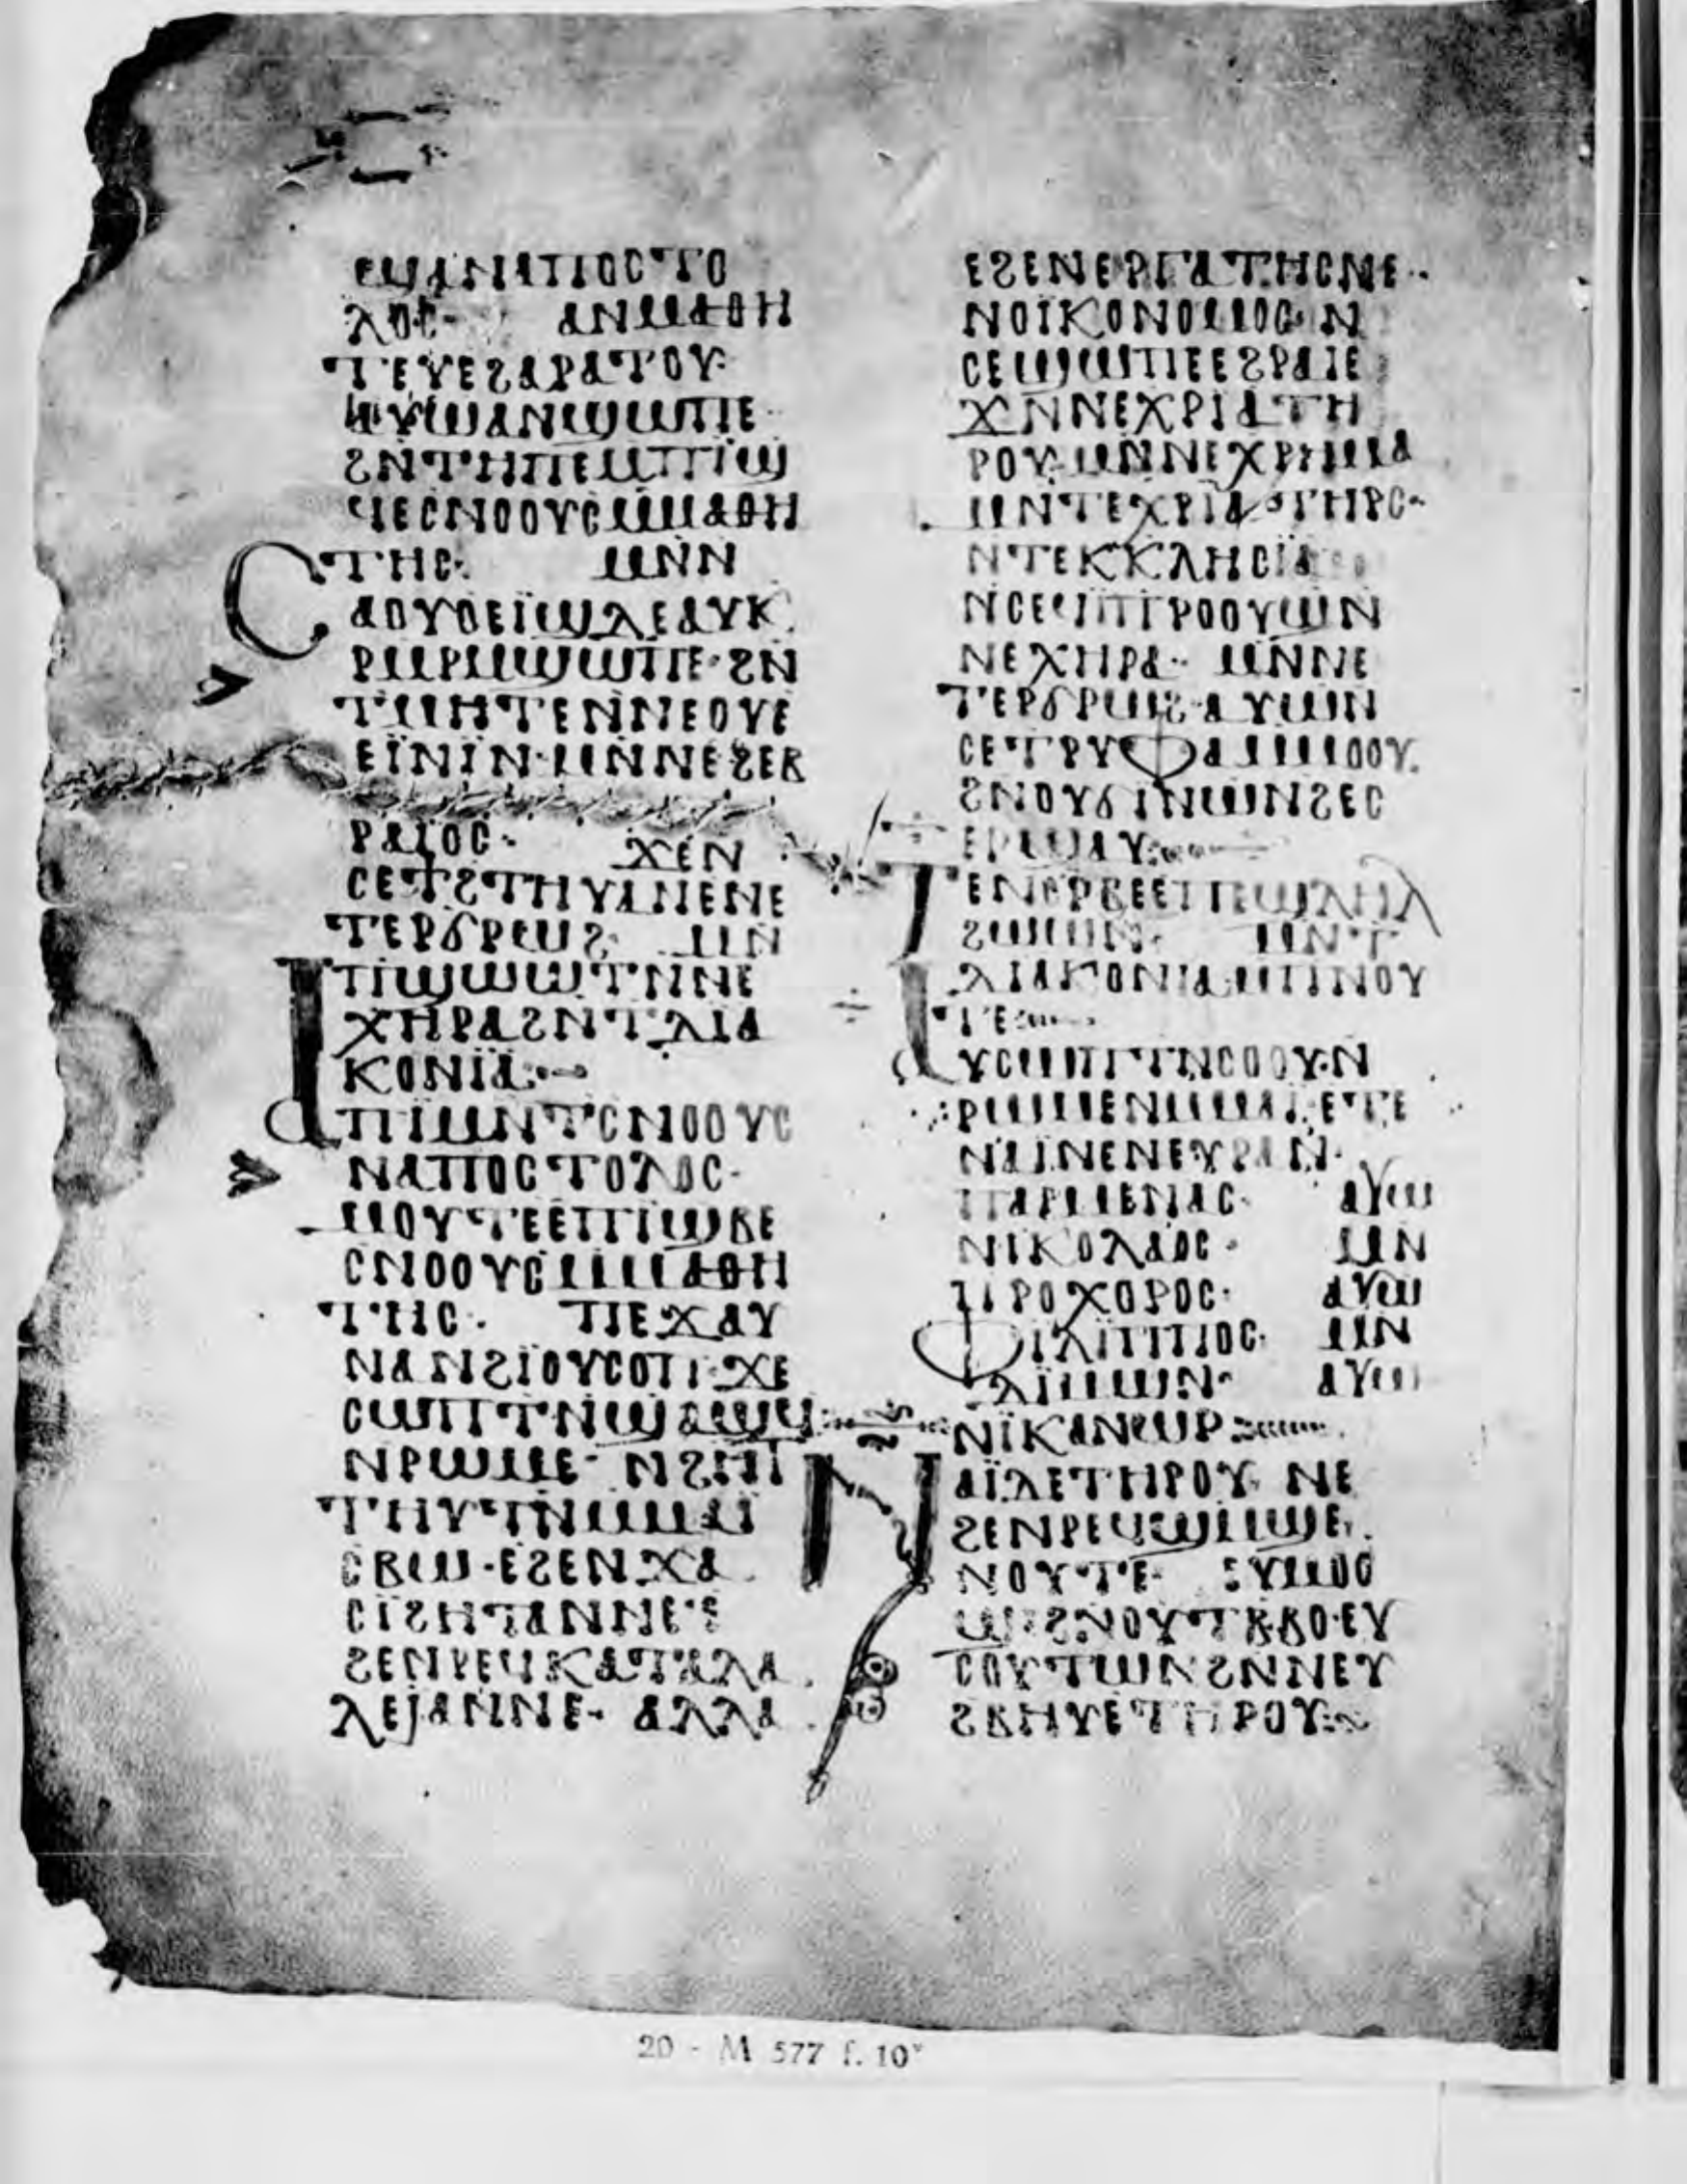 ⲉϣⲁⲛⲁⲡⲟⲥⲧⲟ
ⲗⲟⲥ· ⲁⲛⲙⲁⲑⲏ
ⲧⲉⲩⲉϩⲁⲣⲁⲧⲟⲩ·
ϣⲱⲡⲉ
ϩⲛⲧⲏⲡⲉⲙⲡⲓϣ
ϥⲉⲥⲛⲟⲟⲩⲥⲙⲙⲁⲑⲏ
ⲧⲏⲥ· ⲙⲛⲛ
ⲥⲁⲟⲩⲟⲉⲓϣⲇⲉⲁⲩⲕ
ⲣⲙⲣⲙϣⲱⲡⲉ·ϩⲛ
ⲧⲙⲏⲧⲉⲛⲛⲉⲟⲩⲉ
ⲉⲓⲛⲓⲛ·ⲙⲛⲛⲉϩⲉⲃ
ⲣⲁⲓⲟⲥ· ϫⲉⲛ
ⲥⲉϯϩⲧⲏⲩⲁⲛⲉⲛⲉ
ⲧⲉⲣϭⲣⲱϩ· ⲙⲛ
ⲡϣⲱⲱⲧⲛⲛⲉ
ⲭⲏⲣⲁϩⲛⲧⲇⲓⲁ
ⲕⲟⲛⲓⲁ:—
ⲁⲡⲓⲙⲛⲧⲥⲛⲟⲟⲩⲥ
ⲛⲁⲡⲟⲥⲧⲟⲗⲟⲥ·
ⲙⲟⲩⲧⲉⲉⲡⲓϣⲃⲉ
ⲥⲛⲟⲟⲩⲥⲙⲙⲁⲑⲏ
ⲧⲏⲥ· ⲡⲉϫⲁⲩ
ⲛⲁⲛϩⲓⲟⲩⲥⲟⲡ·ϫⲉ
ⲥⲱⲧⲡⲛϣⲁϣϥ
ⲛⲣⲱⲙⲉ· ⲛϩⲏⲧ
ⲧⲏⲩⲧⲛ
ⲥⲃⲱ·ⲉϩⲉⲛϫⲁ
ⲥⲓϩⲏⲧⲁⲛⲛⲉ·
ϩⲉⲛⲣⲉϥⲕⲁⲧⲁⲗⲁ
ⲗⲉⲓⲁⲛⲛⲉ· ⲁⲗⲗⲁ
ⲉϩⲉⲛⲉⲣⲅⲁⲧⲏⲥⲛⲉ·
ⲛⲟⲓⲕⲟⲛⲟⲙⲟⲥ·ⲛ
ⲥⲉϣⲱⲡⲉⲉϩⲣⲁⲓⲉ
ϫⲛⲛⲉⲭⲣⲓⲁⲧⲏ
ⲣⲟⲩ·ⲙⲛⲛⲉⲭⲣⲏⲙⲁ
ⲙⲛⲧⲉⲭⲣⲓⲁⲧⲏⲣⲥ·
ⲛⲧⲉⲕⲕⲗⲏⲥⲓⲁ
ⲛⲥⲉϥⲓⲡⲣⲟⲟⲩϣⲛ
ⲛⲉⲭⲏⲣⲁ· ⲙⲛⲛⲉ
ⲧⲉⲣϭⲣⲱϩ·ⲁⲩⲱⲛ
ⲥⲉⲧⲣⲩⲫⲁⲙⲙⲟⲟⲩ·
ϩⲛⲟⲩϭⲓⲛⲱⲛϩⲉⲥ
ⲉⲣϣⲁⲩ:
ⲧⲉⲛⲥⲣⲃⲉⲉⲡⲉϣⲗⲏⲗ
ϩⲱⲱⲛ· ⲙⲛⲧ
ⲇⲓⲁⲕⲟⲛⲓⲁⲙⲡⲛⲟⲩ
ⲧⲉ:
ⲁⲩⲥⲱⲧⲡ
ⲣⲱⲙⲉⲛⲙⲙⲁⲓ·ⲉⲧⲉ
ⲛⲁⲓⲛⲉⲛⲉⲩⲣⲁⲛ·
ⲡⲁⲣⲙⲉⲛⲁⲥ· ⲁⲩⲱ
ⲛⲓⲕⲟⲗⲁⲟⲥ· ⲙⲛ
ⲡⲣⲟⲭⲟⲣⲟⲥ· ⲁⲩⲱ
ⲫⲓⲗⲓⲡⲡⲟⲥ· ⲙⲛ
ⲇⲓⲙⲱⲛ· ⲁⲩⲱ
ⲛⲓⲕⲁⲛⲱⲣ:
ⲛⲁⲓⲇⲉⲧⲏⲣⲟⲩ ⲛⲉ
ϩⲉⲛⲣⲉϥϣⲙϣⲉ
ⲛⲟⲩⲧⲉ·
ϩⲛⲟⲩⲧⲃⲃⲟ·ⲉⲩ
ⲥⲟⲩⲧⲱⲛϩⲛⲛⲉⲩ
ϩⲃⲏⲩⲉⲧⲏⲣⲟⲩ:
20 - M 577 f. 10ᵛ